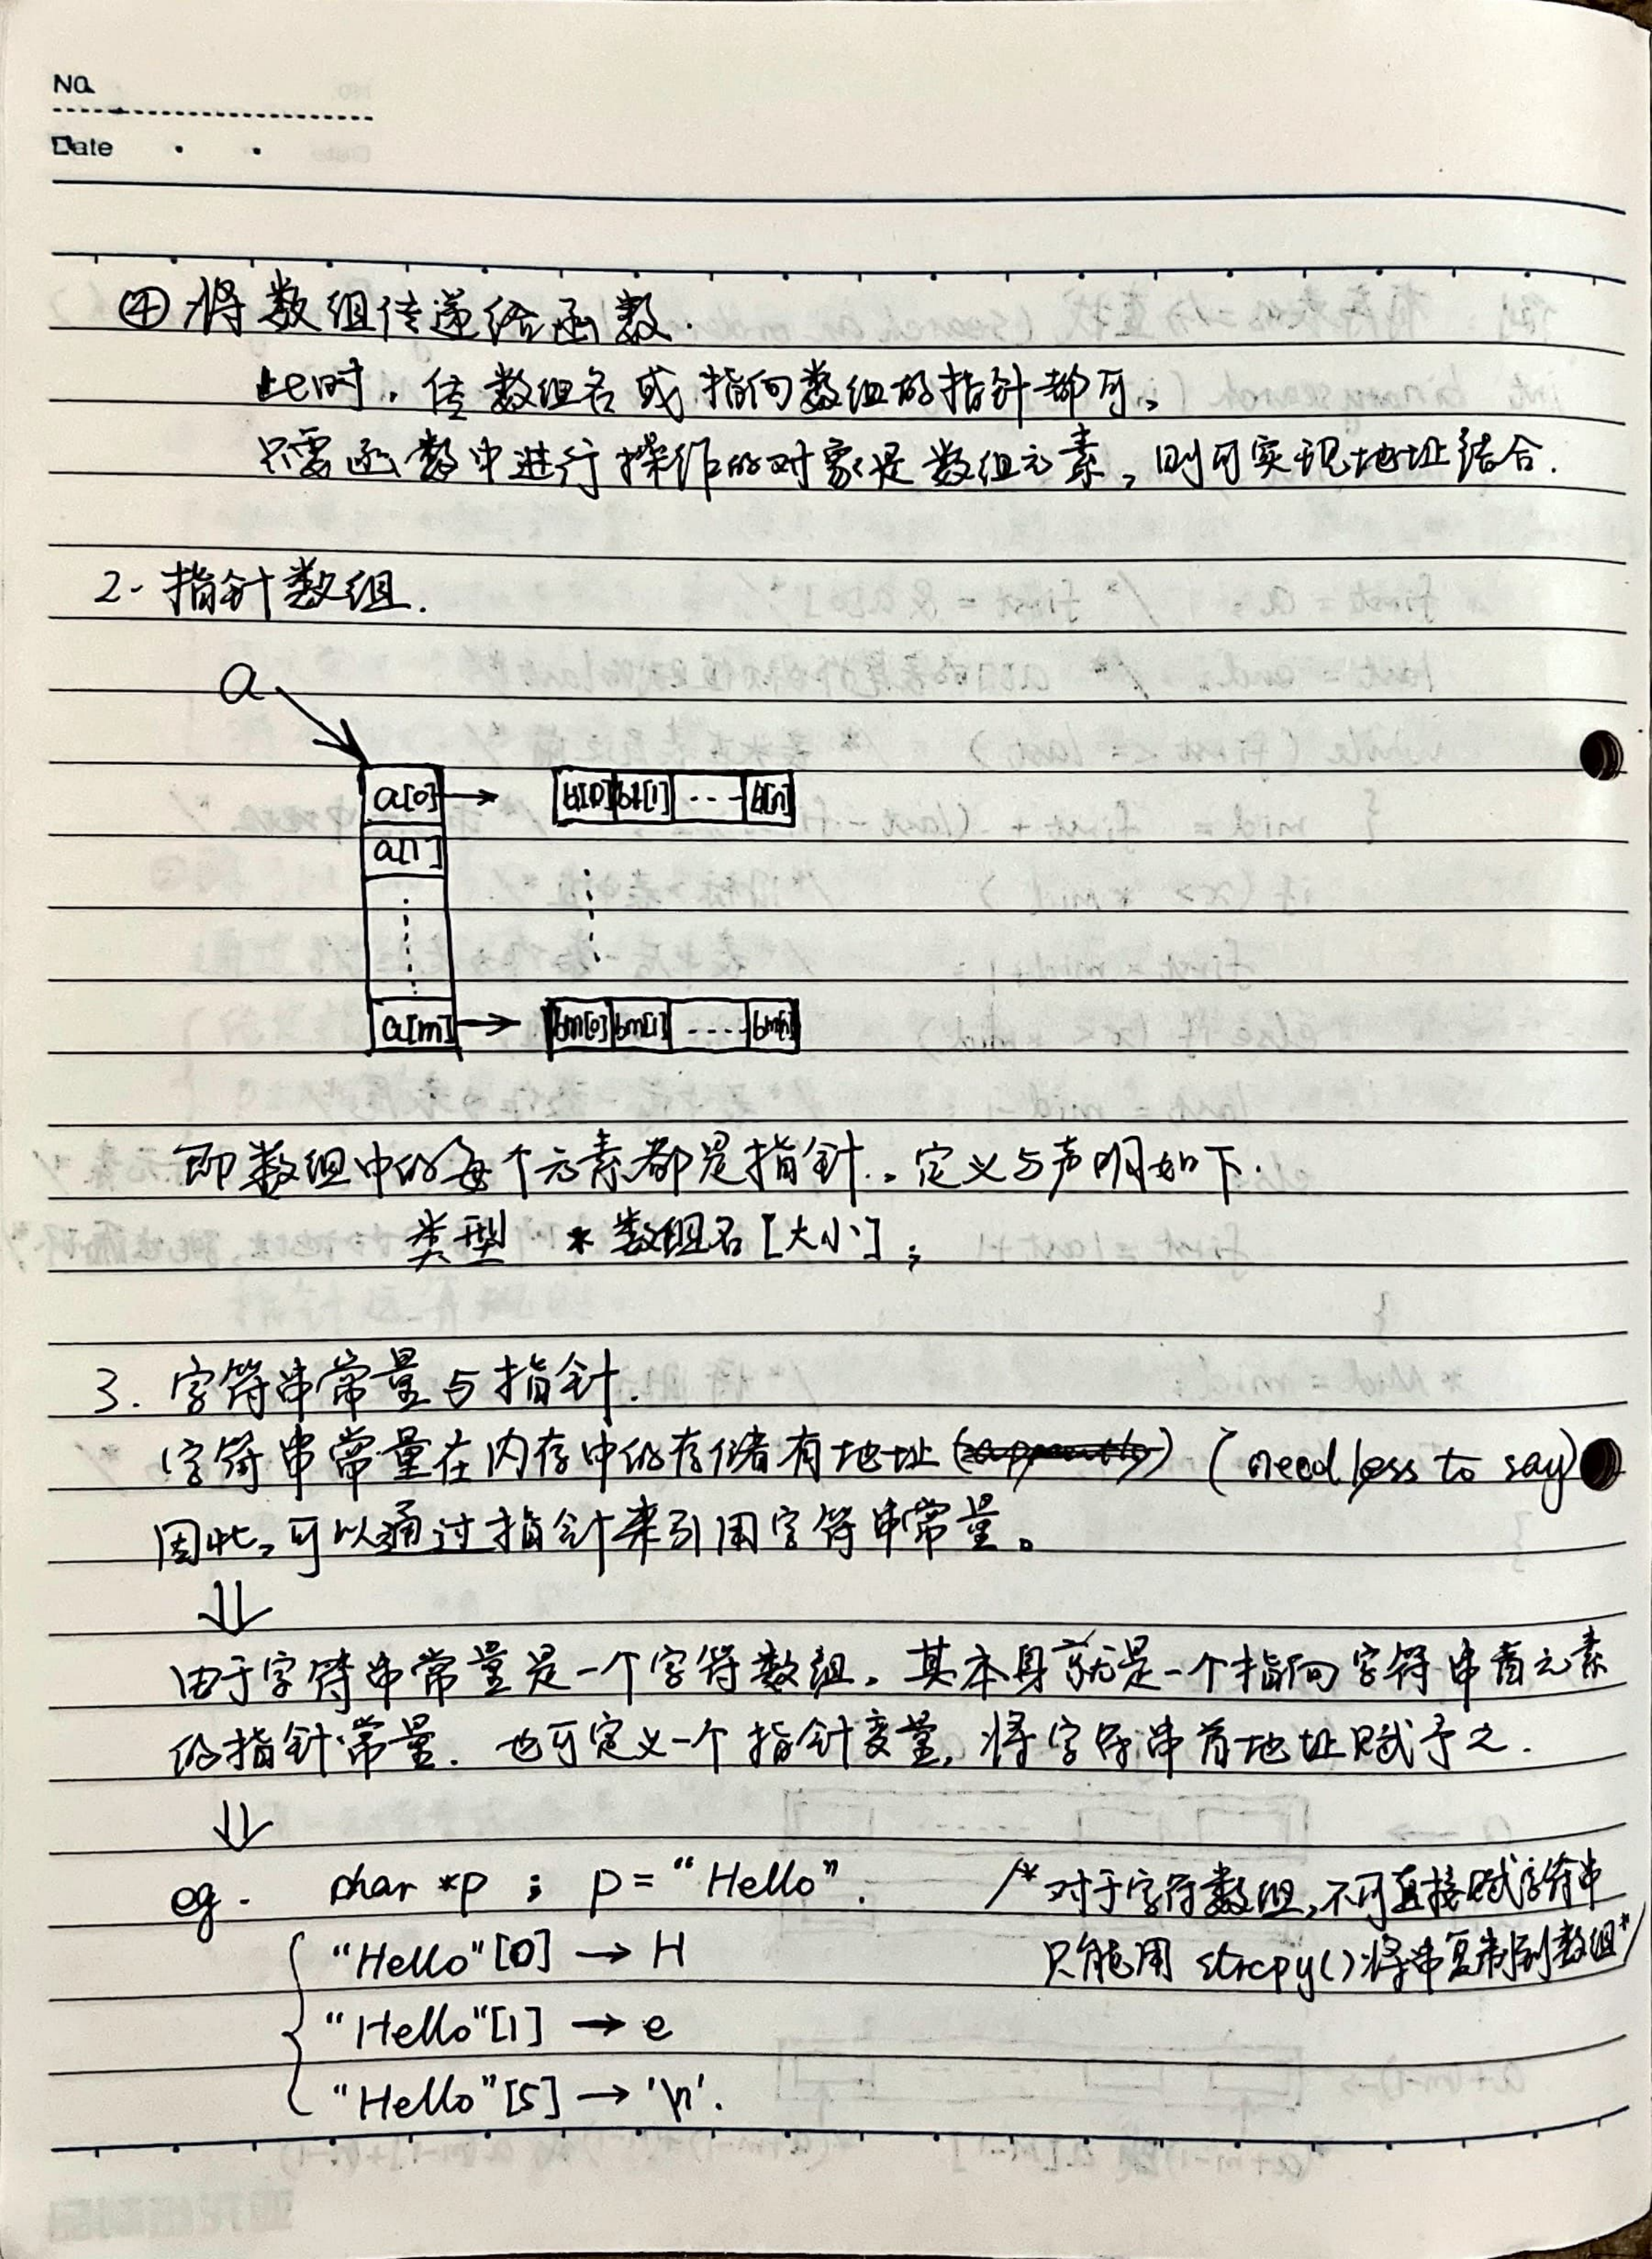 No.
Date
④ 将数组传递给函数.
此时,传数组名或指向数组的指针都可。
只需函数中进行操作的对象是数组元素,则可实现地址结合.
2. 指针数组.
a
a[0] → b[0] b[1] ... b[n]
a[1]
a[m] → bm[0] bm[1] .... bm[n]
即数组中的每个元素都是指针.。定义与声明如下.
类型 *数组名[大小];
3. 字符串常量与指针.
字符串常量在内存中的存储有地址 (need less to say)
因此,可以通过指针来引用字符串常量。
⇓
由于字符串常量是一个字符数组,其本身就是一个指向字符串首元素
的指针常量. 也可定义一个指针变量,将字符串首地址赋予之.
⇓
eg. char *p ; p = "Hello". /* 对于字符数组,不可直接赋字符串
"Hello"[0] → H 只能用 strcpy()将串复制到数组*/
"Hello"[1] → e
"Hello"[5] → '\n'.